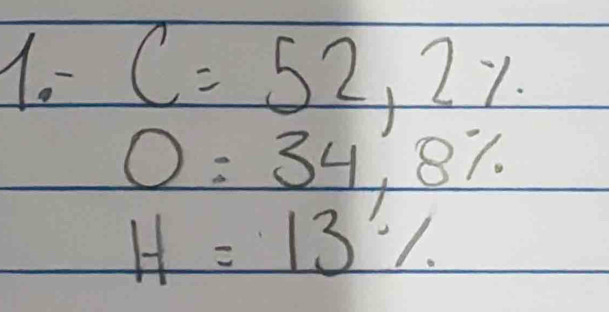 1.- C = 52,2%
O = 34,8%
H = 13%